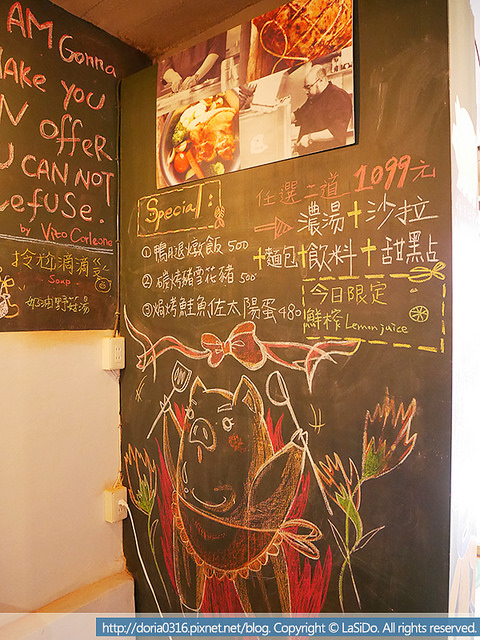 I AM Gonna
Make you
AN offeR
U CAN NOT
Refuse.
by Vito Corleone
Soup
奶油野菇湯
Special:
①鴨腿燉飯 500
②碳烤豬雪花豬 500
③焗烤鮭魚佐太陽蛋 480
任選二道 1099元
濃湯+沙拉
+麵包+飲料+甜點
今日限定
鮮榨 Lemon juice
http://doria0316.pixnet.net/blog. Copyright © LaSiDo. All rights reserved.